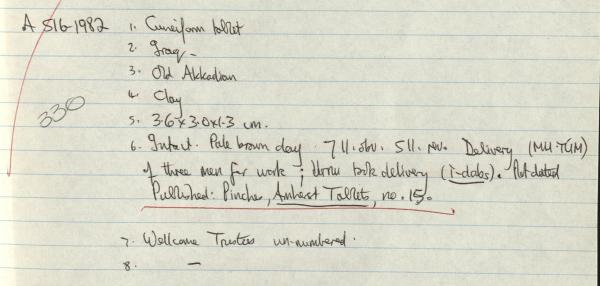 A 516-1982 1. Cuneiform tablet
2. Iraq -
3. Old Akkadian
330
4. Clay
5. 3.6 x 3.0 x 1.3 cm.
6. Intact. Pale brown clay. 7 ll. obv. 5 ll. rev. Delivery (MU-TÚM)
of three men for work; took delivery (ì-dabs). Not dated
Published: Pinches, Amherst Tablets, no. 15.
7. Wellcome Trustees un-numbered.
8. —